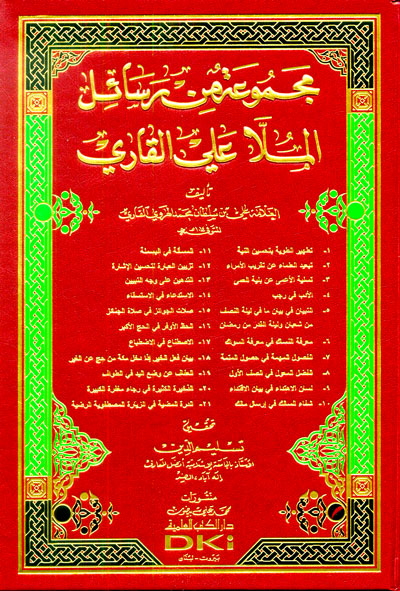 مجموعة من رسائل
الملا علي القاري
تأليف
العلامة علي بن سلطان محمد الهروي القاري
١- تطهير الطوية بتحسين النية
٢- تبعيد العلماء عن تقريب الأمراء
٣- تسلية الأعمى عن بلية العمى
٤- الأدب في رجب
٥- التبيان في بيان ما في ليلة النصف
من شعبان وليلة القدر من رمضان
٦- معرفة النساك في معرفة السواك
٧- الفصول المهمة في حصول المتمة
٨- الفضل المعول في الصف الأول
٩- لسان الاهتداء في بيان الاقتداء
١٠- شفاء السالك في إرسال مالك
١١- المسألة في البسملة
١٢- تزيين العبارة لتحسين الإشارة
١٣- التدهين على وجه التبيين
١٤- الاستدعاء في الاستسقاء
١٥- صلات الجوائز في صلاة الجنائز
١٦- الحظ الأوفر في الحج الأكبر
١٧- الاصطناع في الاضطباع
١٨- بيان فعل الخير إذا دخل مكة من حج عن الغير
١٩- العفاف عن وضع اليد في الطواف
٢٠- الذخيرة الكثيرة في رجاء مغفرة الكبيرة
٢١- الدرة المضية في الزيارة المصطفوية الرضية
تحقيق
منشورات
محمد علي بيضون
دار الكتب العلمية
DKi
بيروت - لبنان